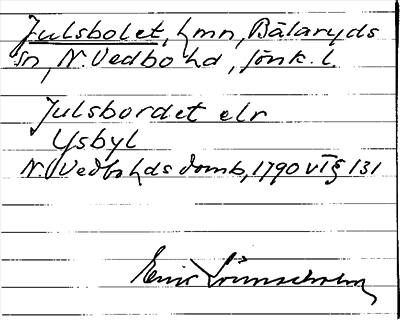 Julsbolet, hmn, Bälaryds
sn, N. Vedbo hd, Jönk. l.
Julsbordet elr
Ysbyl
N. Vedbo hds domb, 1790 VT § 131
Eric